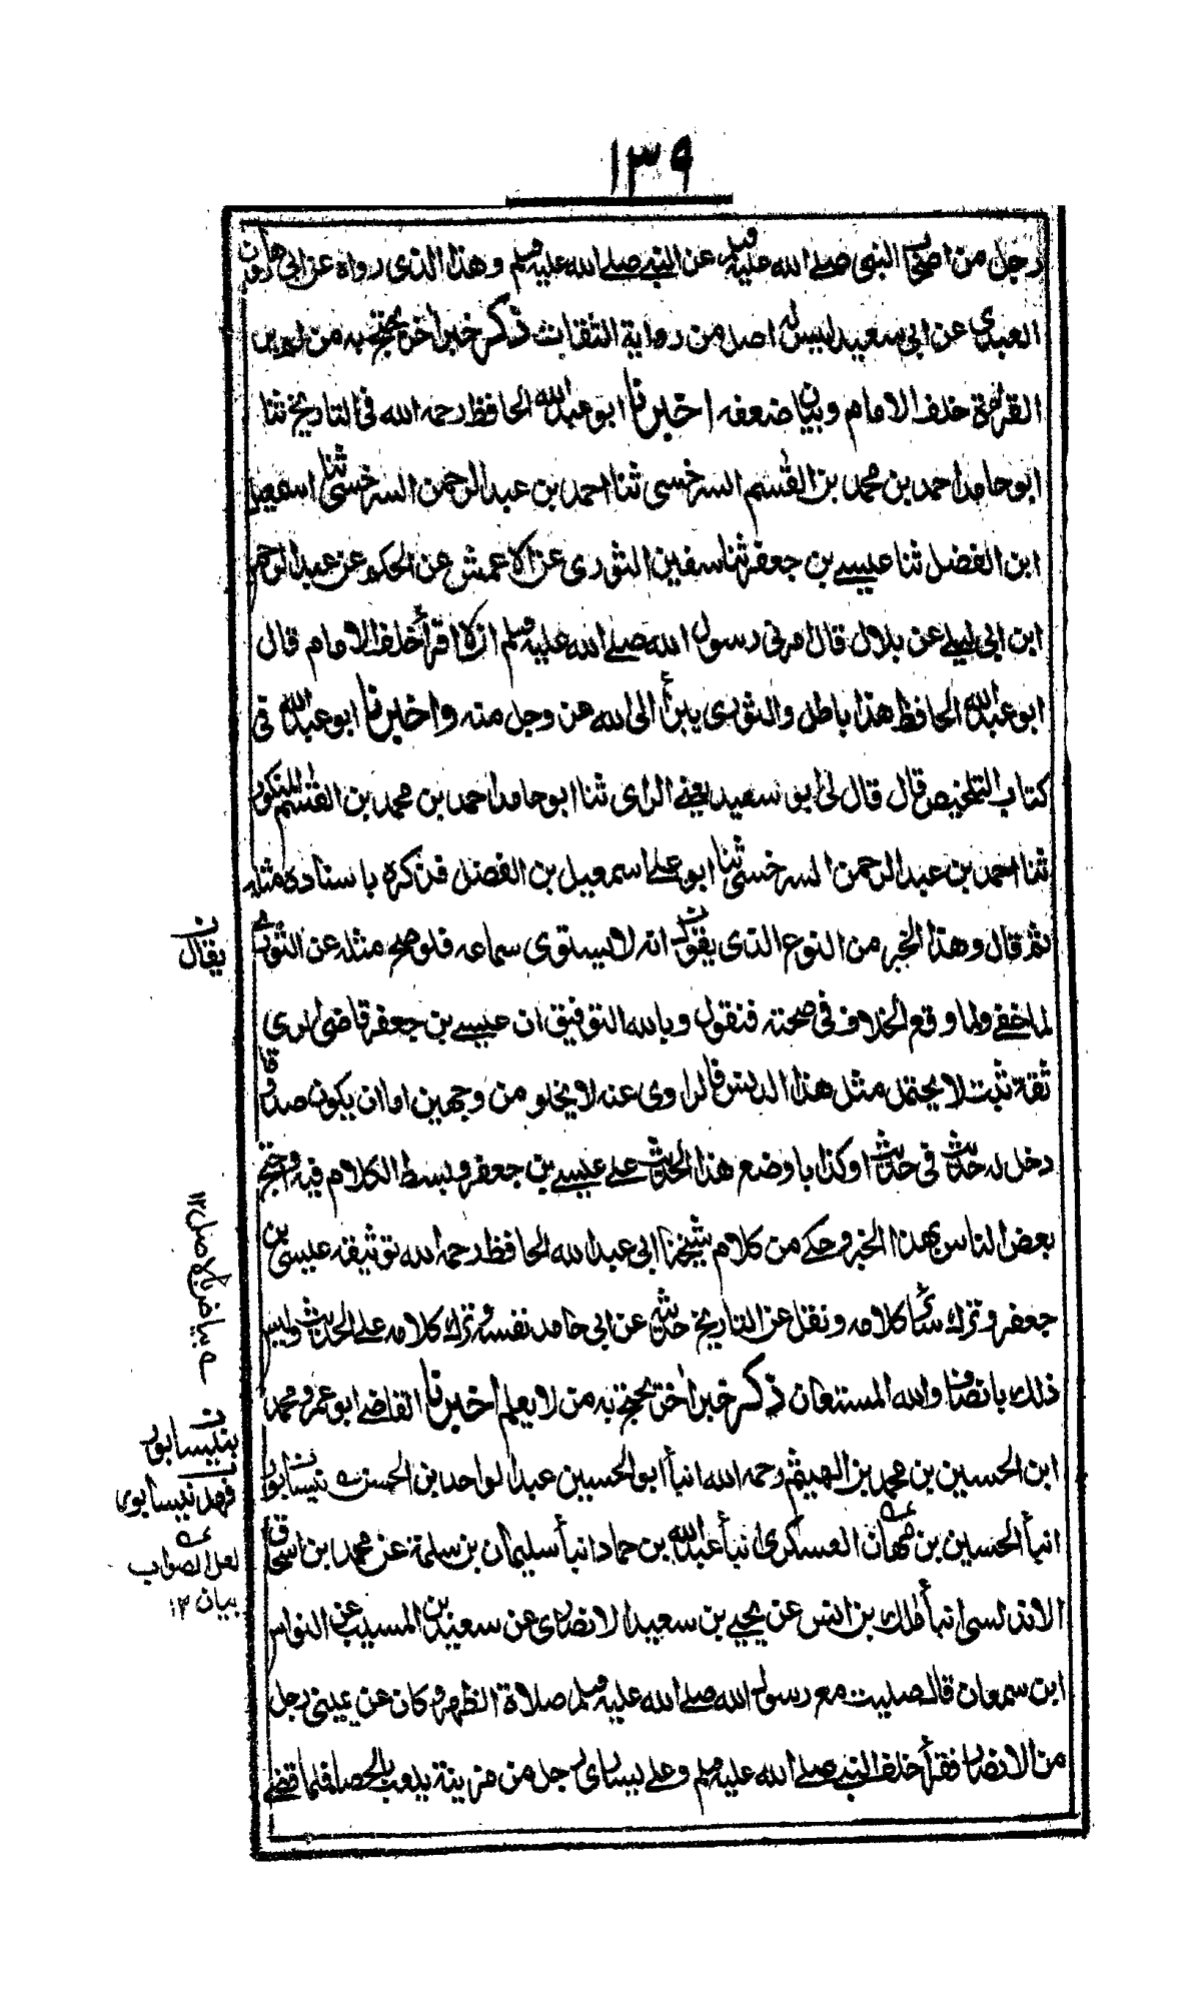 ١٣٩
رجل من اصحاب النبى صلے الله عليه وسلم عن النبے صلے الله عليه وسلم وهذا الذى رواه عن ابى هارون
العبدى عن ابى سعيد ليس له اصل من رواية الثقات ذكر خبر اخر يحتج به من لم ير
القراءة خلف الامام وبيان ضعفه اخبرنا ابو عبد الله الحافظ رحمه الله فى التاريخ ثنا
ابو حامد احمد بن محمد بن القسم السرخسى ثنا احمد بن عبد الرحمن السرخسى ثنا اسمعيل
ابن الفضل ثنا عيسے بن جعفر ثنا سفين الثورى عن الاعمش عن الحكم عن عبد الرحمن
ابن ابى ليلے عن بلال قال امرنى رسول الله صلے الله عليه وسلم ان لا اقرأ خلف الامام قال
ابو عبد الله الحافظ هذا باطل والثورى يبرأ الى الله عز وجل منه واخبرنا ابو عبد الله فى
كتاب التلخيص قال قال لى ابو سعيد يعنے الرازى ثنا ابو حامد احمد بن محمد بن القسم المذكور
ثنا احمد بن عبد الرحمن السرخسى ثنا ابو على اسمعيل بن الفضل فذكره باسناده مثله
ثم قال وهذا الخبر من النوع الذى يقول انه لا يستوى سماعه فلو صح مثله عن الثورے
لما خفے ولما وقع الخلاف فى صحته فنقول وبالله التوفيق ان عيسے بن جعفر قاضى الرى
ثقة ثبت لا يحتمل مثل هذا الدنس فالراوى عنه لا يخلو من وجهين اما ان يكون صدوقا
دخل له حديث فى حديث او كذابا وضع هذا الحديث علے عيسے بن جعفر وبسط الكلام فيه واحتج
بعض الناس بهذا الخبر وحكے من كلام شيخنا ابى عبد الله الحافظ رحمه الله توثيقه عيسى بن
جعفر وترك سائر كلامه ونقل عن التاريخ حديثه عن ابى حامد نفسه وترك كلامه على الحديث وليس
ذلك بانصاف والله المستعان ذكر خبر اخر يحتج به من لا يعلم اخبرنا القاضے ابو عمرو محمد
ابن الحسين بن محمد بن الهيثم رحمه الله انبأ ابو الحسين عبد الواحد بن الحسن بنيسابور
انبأ الحسين بن بهان العسكرى انبأ عبد الله بن حماد انبأ سليمان بن سلمة عن محمد بن اسحاق
الاندلسى انبأ ملك بن انس عن يحيے بن سعيد الانصارى عن سعيد بن المسيب عن النواس
ابن سمعان قال صليت مع رسول الله صلے الله عليه وسلم صلاة الظهر وكان عن يمينى رجل
من الانصار فقرأ خلف النبے صلے الله عليه وسلم وعلے يسارى رجل من مزينة يلعب بالحصا فلما قضے
يقال
بياض بالاصل ١٢
بنيسابور
لعل الصواب
بيان ١٢